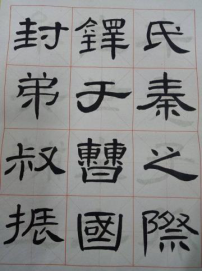 氏秦之際
鐸于曹國
封弟叔振